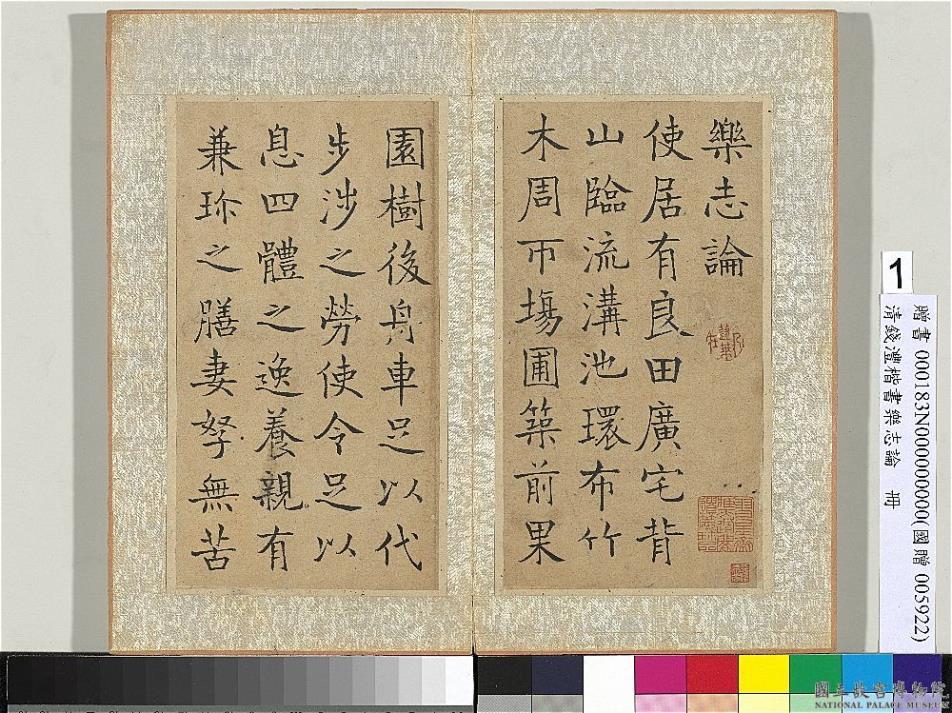 樂志論
使居有良田廣宅背
山臨流溝池環布竹
木周帀場圃築前果
園樹後舟車足以代
步涉之勞使令足以
息四體之逸養親有
兼珎之膳妻孥無苦
1
贈書 000183N000000000(國贈 005922)
清錢灃楷書樂志論 冊
國立故宮博物院
NATIONAL PALACE MUSEUM